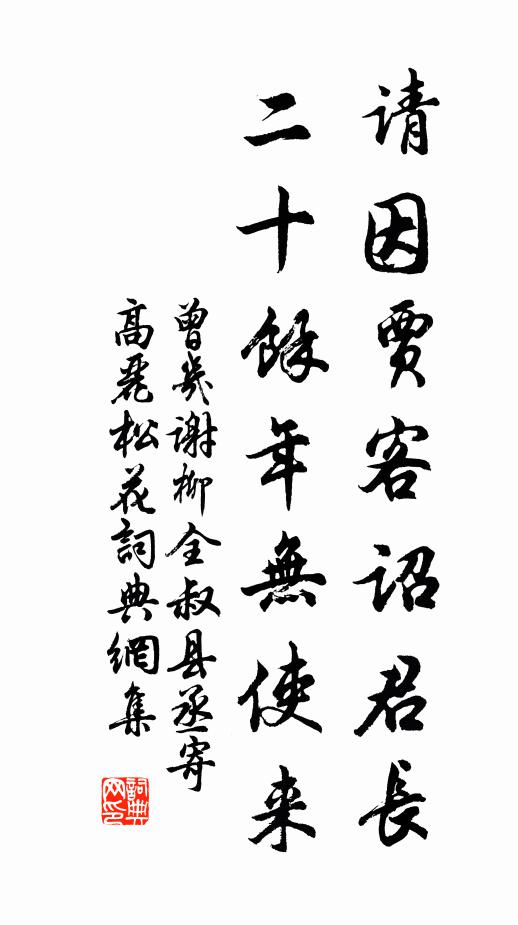 请因贾客詔君長
二十餘年無使来
曾幾謝柳全叔县丞寄
高麗松花詞典網集
詞典网印